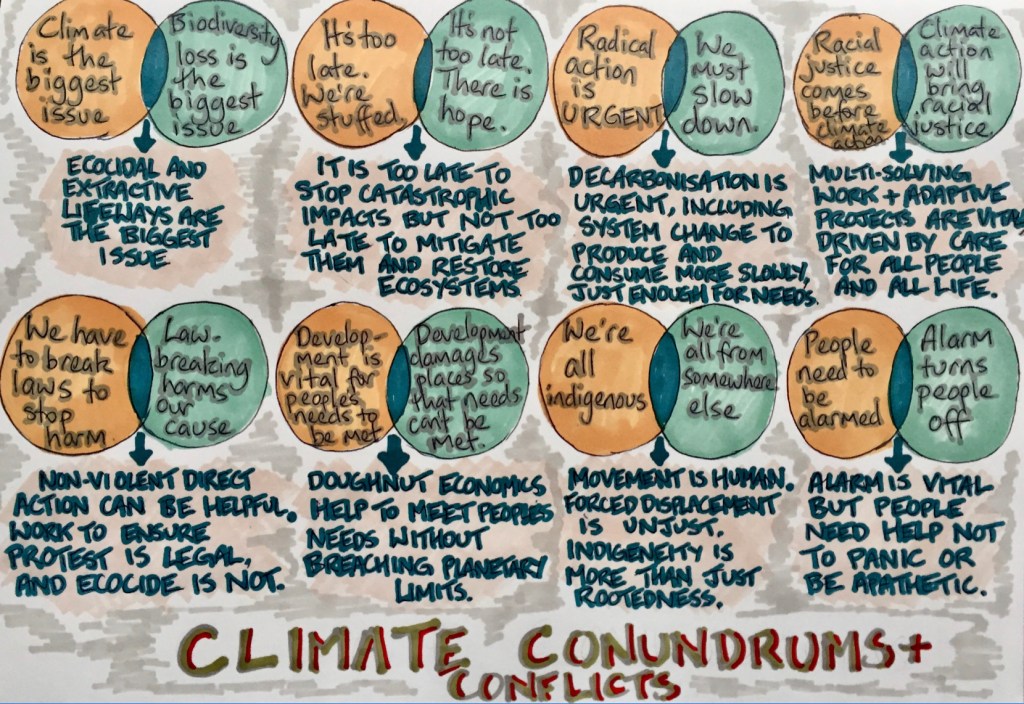 Climate
is the
biggest
issue
Biodiversity
loss is
the
biggest
issue
ECOCIDAL AND
EXTRACTIVE
LIFEWAYS ARE
THE BIGGEST
ISSUE
It's too
late.
We're
stuffed.
It's not
too late.
There is
hope.
IT IS TOO LATE TO
STOP CATASTROPHIC
IMPACTS BUT NOT TOO
LATE TO MITIGATE
THEM AND RESTORE
ECOSYSTEMS.
Radical
action
is
URGENT
We
must
slow
down.
DECARBONISATION IS
URGENT, INCLUDING
SYSTEM CHANGE TO
PRODUCE AND
CONSUME MORE SLOWLY,
JUST ENOUGH FOR NEEDS.
Racial
justice
comes
before
climate
action
Climate
action
will
bring
racial
justice.
MULTI-SOLVING
WORK + ADAPTIVE
PROJECTS ARE VITAL
DRIVEN BY CARE
FOR ALL PEOPLE
AND ALL LIFE.
We have
to break
laws to
stop
harm
Law-
breaking
harms
our
cause
NON-VIOLENT DIRECT
ACTION CAN BE HELPFUL.
WORK TO ENSURE
PROTEST IS LEGAL,
AND ECOCIDE IS NOT.
Develop-
ment is
vital for
peoples
needs to
be met
Development
damages
places so
that needs
cant be
met.
DOUGHNUT ECONOMICS
HELP TO MEET PEOPLES
NEEDS WITHOUT
BREACHING PLANETARY
LIMITS.
We're
all
indigenous
We're
all from
somewhere
else
MOVEMENT IS HUMAN.
FORCED DISPLACEMENT
IS UNJUST.
INDIGENEITY IS
MORE THAN JUST
ROOTEDNESS.
People
need to
be
alarmed
Alarm
turns
people
off
ALARM IS VITAL
BUT PEOPLE
NEED HELP NOT
TO PANIC OR
BE APATHETIC.
CLIMATE CONUNDRUMS +
CONFLICTS